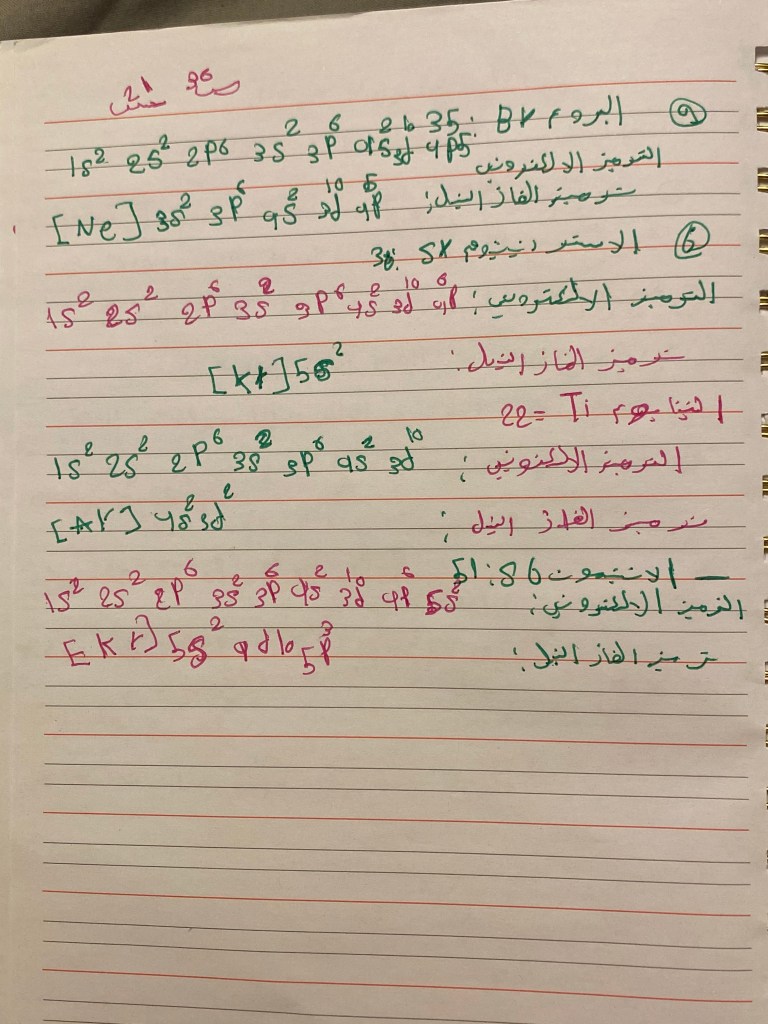 ص36 س21
٩) البروم Br :35
1s² 2s² 2p6 3s² 3p⁶ 4s² 3d 4p5
الترميز الالكتروني
ترميز الغاز النبيل: [Ne] 3s² 3p⁶ 4s² 3d¹⁰ 4p⁵
الاسترونتيوم Sr :38
الترميز الالكتروني: 1s² 2s² 2p⁶ 3s² 3p⁶ 4s² 3d¹⁰ 4p⁶
ترميز الغاز النبيل: [Kr] 5s²
التيتانيوم Ti =22
الترميز الالكتروني: 1s² 2s² 2p⁶ 3s² 3p⁶ 4s² 3d¹⁰
ترميز الغاز النبيل: [Ar] 4s² 3d²
— الانتيمون S6 :51
الترميز الالكتروني: 1s² 2s² 2p⁶ 3s² 3p⁶ 4s² 3d¹⁰ 4p⁶ 5s²
ترميز الغاز النبيل: [Kr] 5s² 4d10 5p³